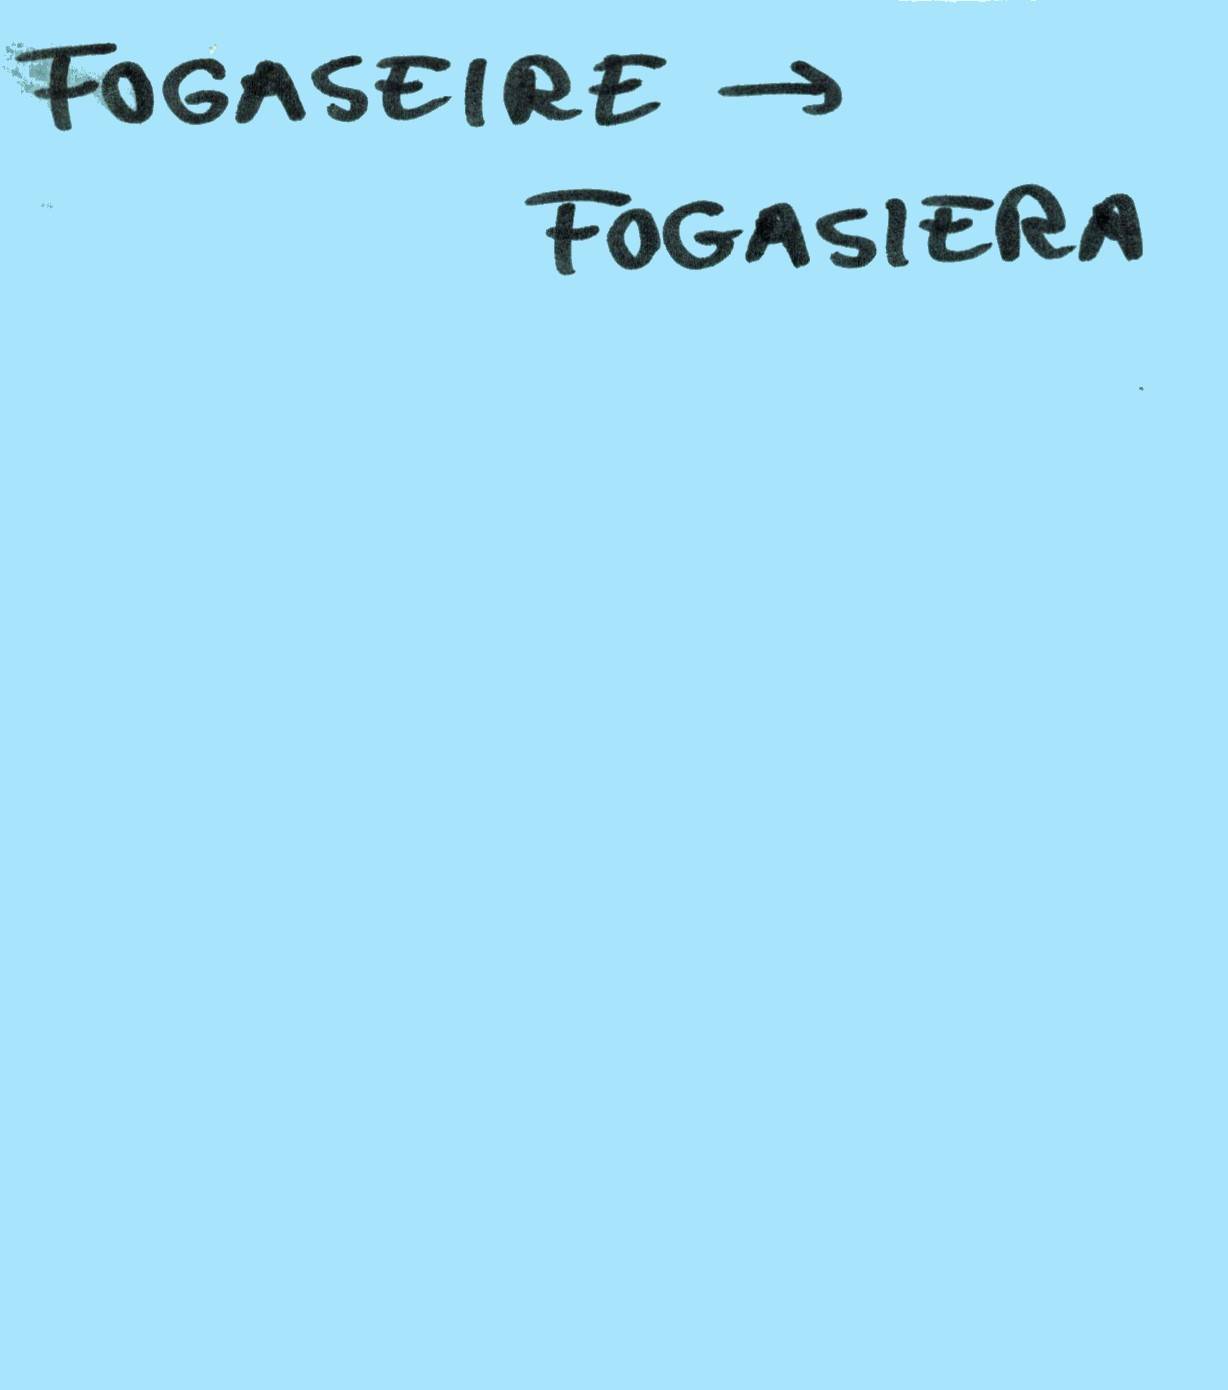 FOGASEIRE →
FOGASIERA